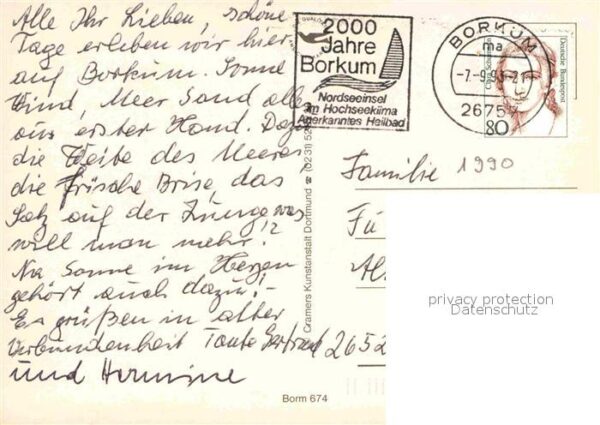 Alle Ihr Lieben, schöne
Tage erleben wir hier
auf Borkum. Sonne
Wind, Meer Sand alles
aus erster Hand. Dazu
die Weite des Meeres
die frische Brise, das
Salz auf der Zunge was
will man mehr!?
Na Sonne im Herzen
gehört auch dazu!-
Es grüßen in alter
Verbundenheit Tante Gertrud
und Hermine
2000
Jahre
Borkum
Nordseeinsel
im Hochseeklima
Anerkanntes Heilbad
BORKUM
ma
-7.-9.93-21
26757
Deutsche Bundespost
80
Cramers Kunstanstalt Dortmund
Familie 1990
Fü
Al
2652
privacy protection
Datenschutz
Borm 674